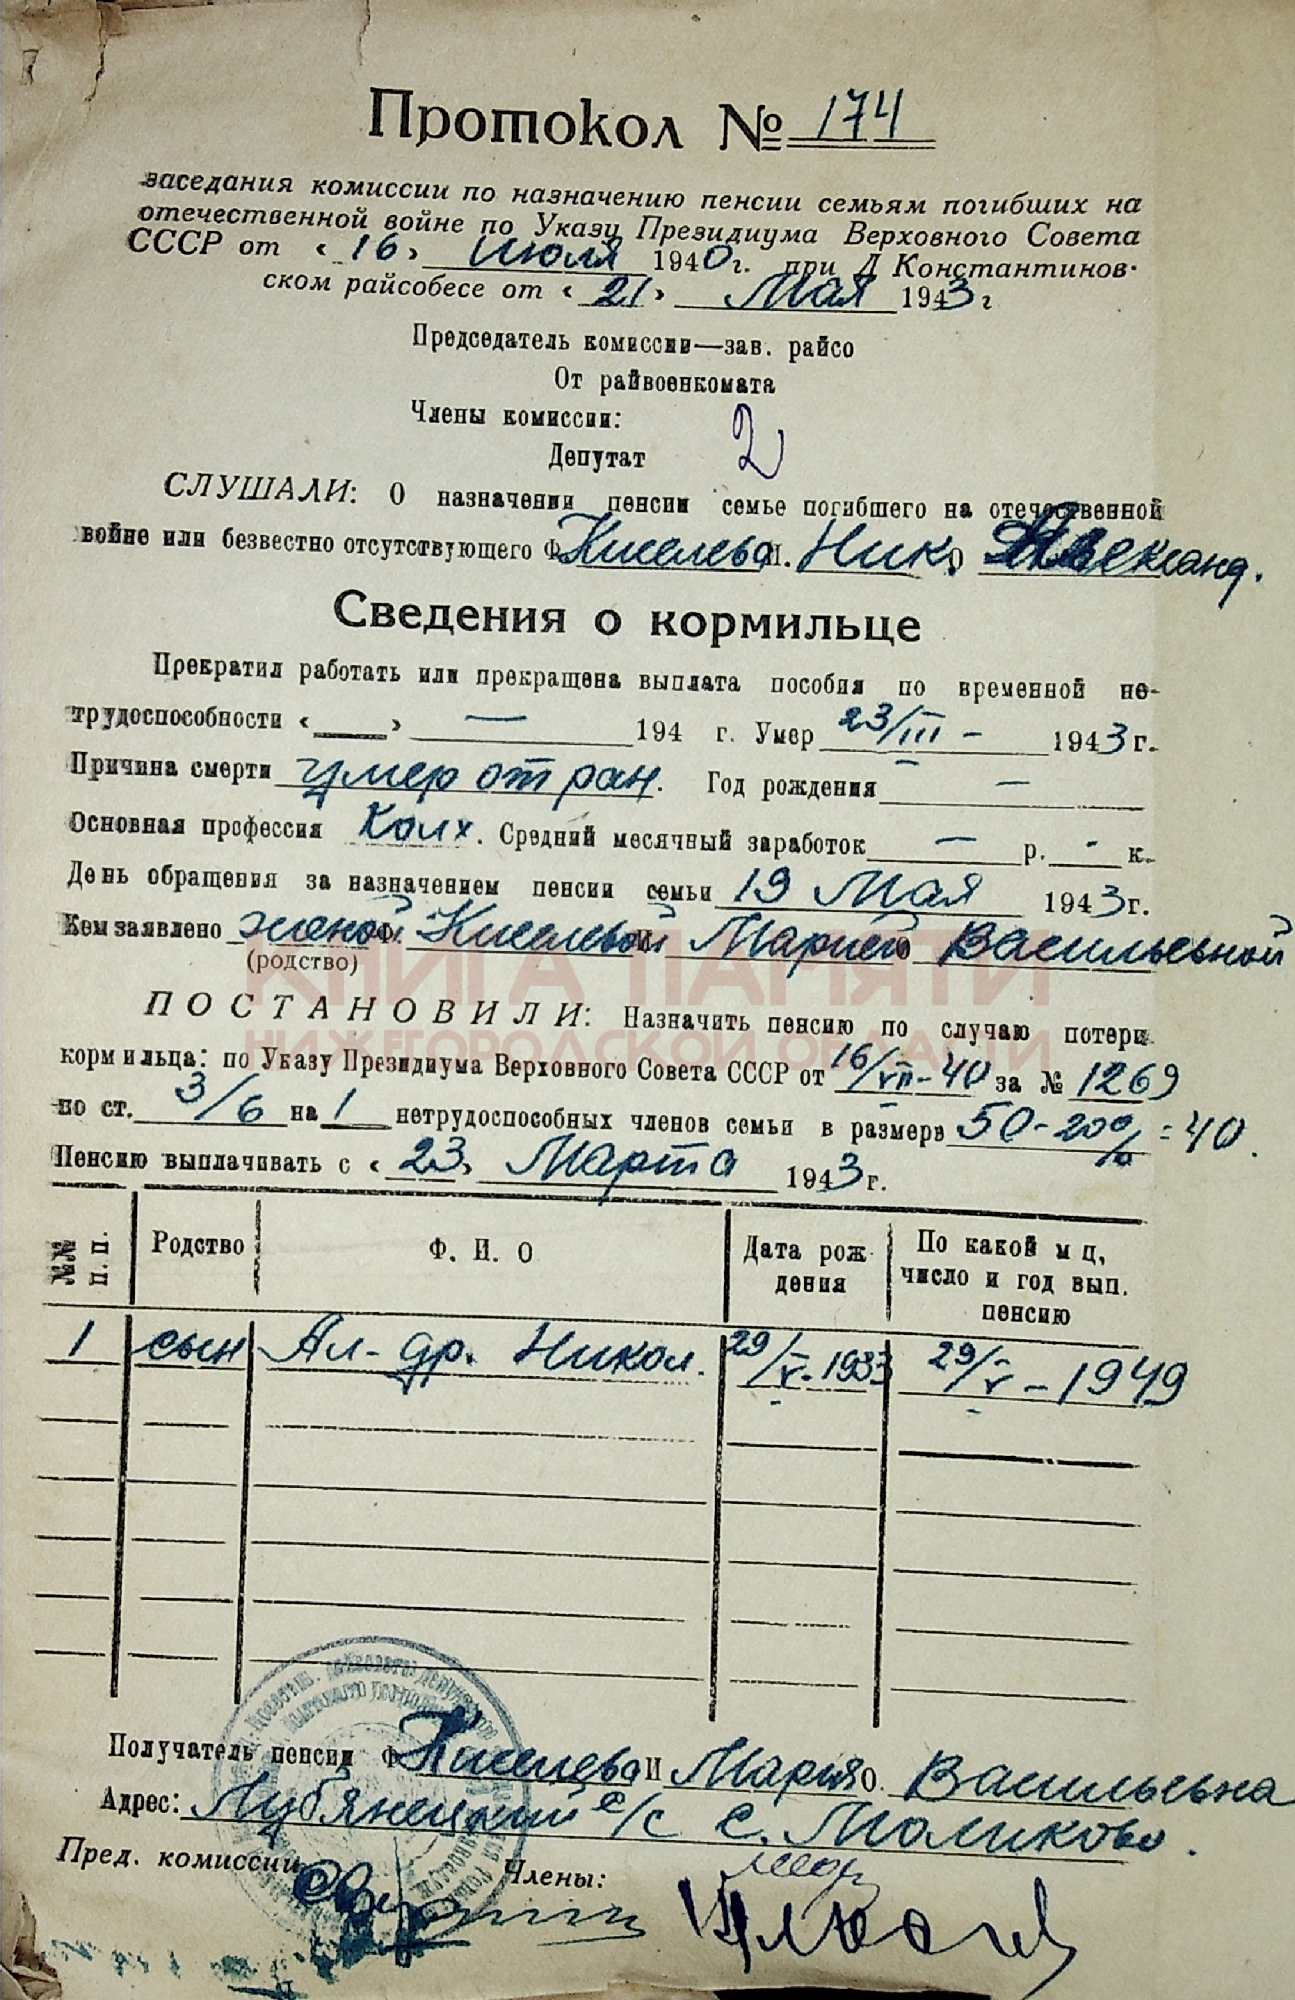 Протокол № 174
заседания комиссии по назначению пенсии семьям погибших на
отечественной войне по Указу Президиума Верховного Совета
СССР от «16» Июля 1940 г. при Д Константинов-
ском райсобесе от «21» Мая 1943 г
Председатель комиссии—зав. райсо
От райвоенкомата
Члены комиссии:
Депутат 2
СЛУШАЛИ: О назначении пенсии семье погибшего на отечественной
войне или безвестно отсутствующего Ф. Киселева И. Ник. О Александ.
Сведения о кормильце
Прекратил работать или прекращена выплата пособия по временной не-
трудоспособности « » — 194 г. Умер 23/III - 1943 г.
Причина смерти умер от ран. Год рождения —
Основная профессия Колх. Средний месячный заработок — р. - к.
День обращения за назначением пенсии семьи 19 Мая 1943 г.
Кем заявлено женой Ф. Киселевой И. Марией О Васильевной
(родство)
КНИГА ПАМЯТИ
НИЖЕГОРОДСКОЙ ОБЛАСТИ
ПОСТАНОВИЛИ: Назначить пенсию по случаю потери
кормильца: по Указу Президиума Верховного Совета СССР от 16/VII-40 за № 1269
по ст. 3/6 на 1 нетрудоспособных членов семьи в размере 50-20% = 40.
Пенсию выплачивать с «23» Марта 1943 г.
№№ п. п. Родство Ф. И. О Дата рождения По какой м ц, число и год вып. пенсию
1 сын Ал-др. Никол. 29/V-1933 29/V-1949
Получатель пенсии Ф Киселева И Мария О. Васильевна
Адрес: Лубянецкий с/с с. Маликово.
Пред. комиссии Члены: